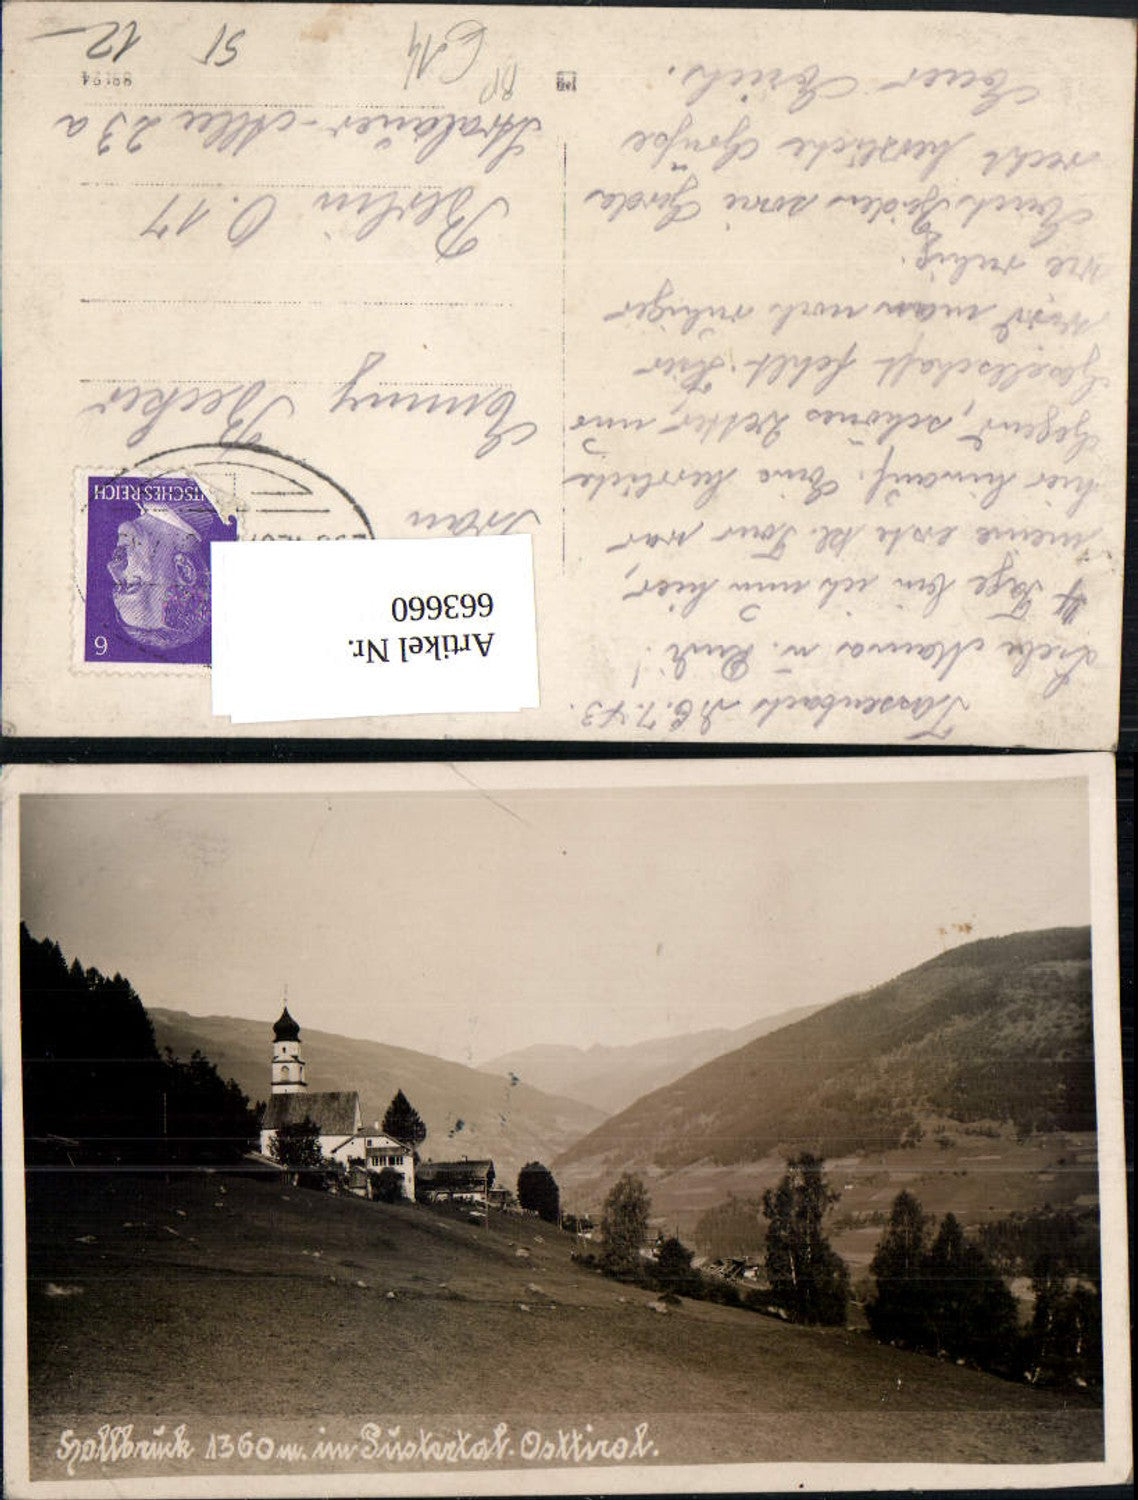 Tassenbach d. 6.7.43.
Liebe Mama u. Rudi!
4 Tage bin ich nun hier,
meine erste kl. Tour war
hier hinauf. Eine herrliche
Gegend, schönes Wetter, nur
Gesellschaft fehlt. Hier
wird man noch ruhiger
wie ruhig.
Euch beiden sowie Gerda
recht herzliche Grüße
Euer Erich.
Frau
Emmy Becker
Berlin O.17
Stralauer-Allee 23a
DEUTSCHES REICH
6
Artikel Nr.
663660
C14
51
12
Hollbruck 1360m. im Pustertal. Osttirol.